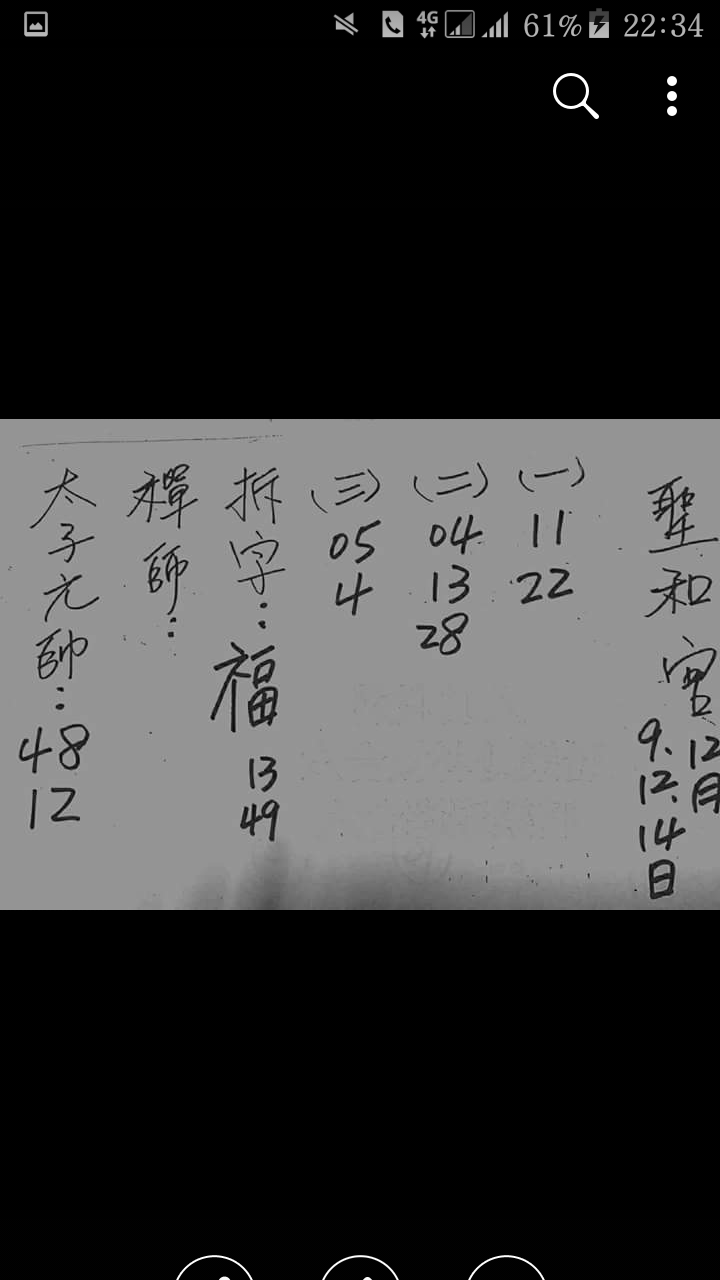 4G 61% 22:34
聖和宮
12月
9.12.14日
(一)
11
22
(二)
04
13
28
(三)
05
4
拆字:福
13
49
禪師:
太子元帥:
48
12